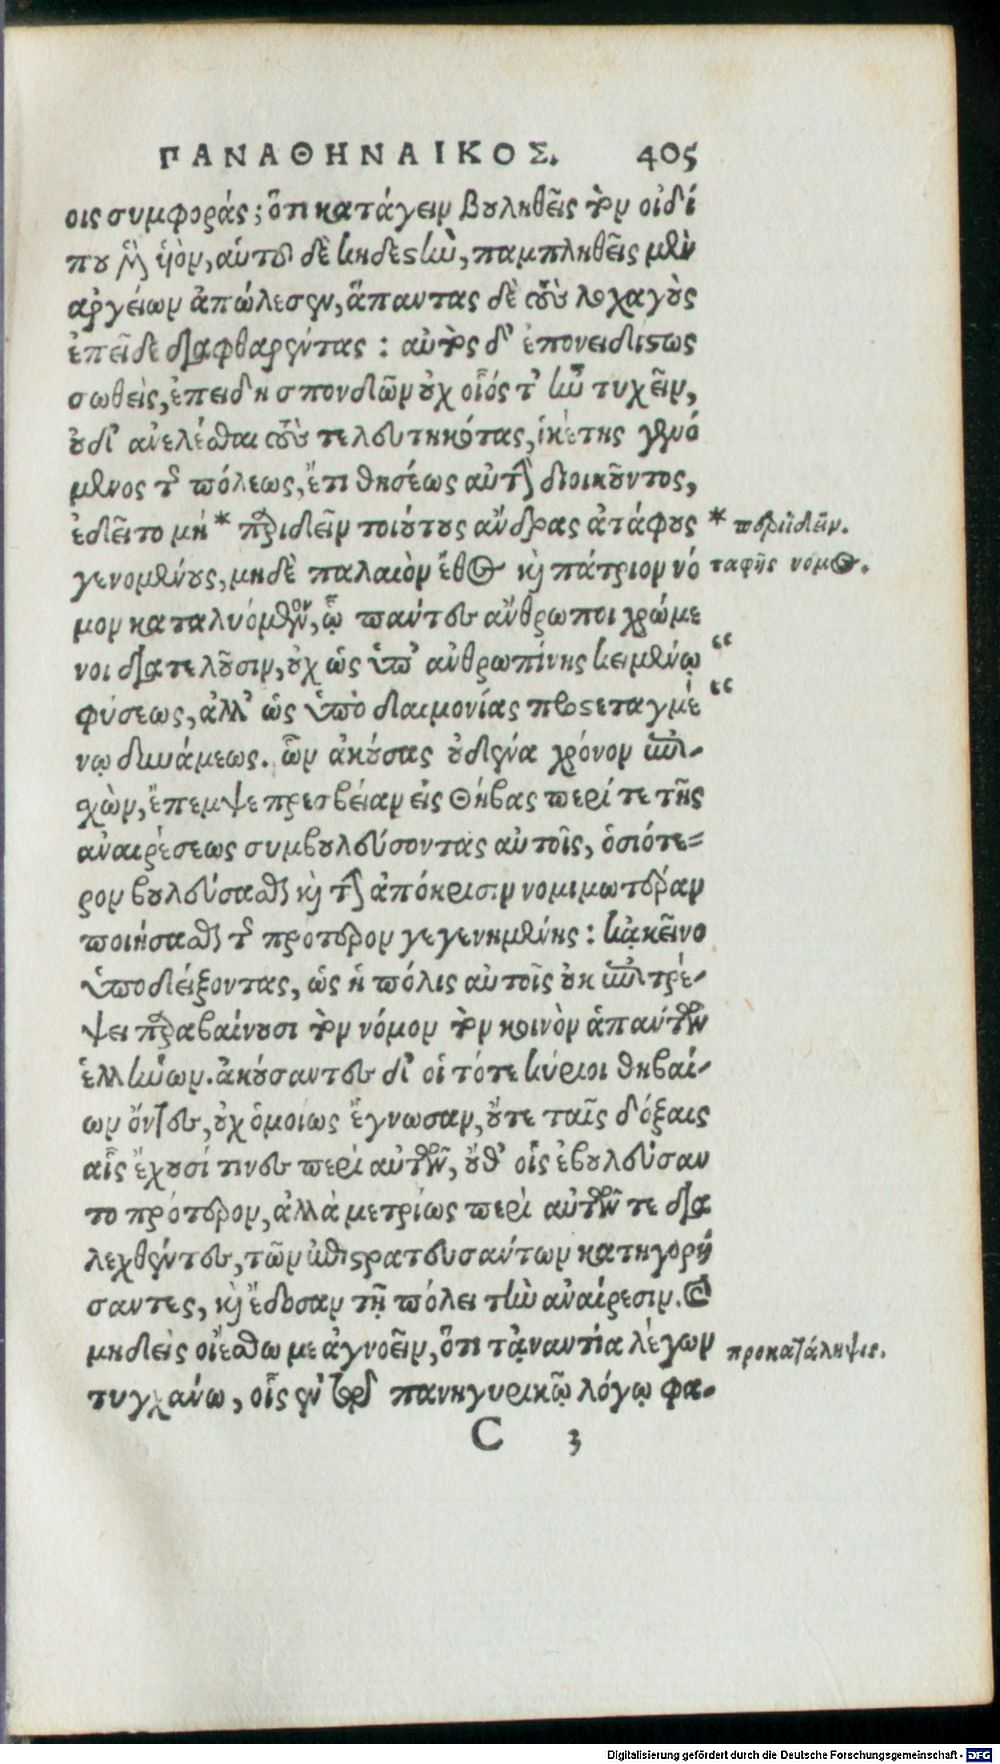 ΠΑΝΑΘΗΝΑΙΚΟΣ. 405
οις συμφοράς; ὅτι κατάγειν βουληθεὶς τὸν οἰδί
που μὲν ὑὸν, αὑτοῦ δὲ κηδεστὴν, παμπληθεῖς μὲν
ἀργείων ἀπώλεσεν, ἅπαντας δὲ τοὺς λοχαγοὺς
ἐπεῖδε διαφθαρέντας : αὐτὸς δ' ἐπονειδίστως
σωθεὶς, ἐπειδὴ σπονδῶν οὐχ οἷός τ' ἦν τυχεῖν,
οὐδ' ἀνελέσθαι τοὺς τελευτηκότας, ἱκέτης γενό
μενος τῆς πόλεως, ἔτι θησέως αὐτὴν διοικοῦντος,
ἐδεῖτο μὴ * παριδεῖν τοιούτους ἄνδρας ἀτάφους
* περιϊδεῖν.
γενομένους, μηδὲ παλαιὸν ἔθος καὶ πάτριον νό
ταφῆς νόμος.
μον καταλυόμενον, ᾧ πάντες ἄνθρωποι χρώμε
νοι διατελοῦσιν, οὐχ ὡς ὑπ' ἀνθρωπίνης κειμένῳ “
φύσεως, ἀλλ' ὡς ὑπὸ δαιμονίας προστεταγμέ “
νῳ δυνάμεως. ὧν ἀκούσας οὐδένα χρόνον ἐπι-
χὼν, ἔπεμψε πρεσβείαν εἰς Θήβας περί τε τῆς
ἀναιρέσεως συμβουλεύσοντας αὐτοῖς, ὁσιότε=
ρον βουλεύσασθαι καὶ τὴν ἀπόκρισιν νομιμωτέραν
ποιήσασθαι τῆς πρότερον γεγενημένης : κᾀκεῖνο
ὑποδείξοντας, ὡς ἡ πόλις αὐτοῖς οὐκ ἐπιτρέ-
ψει παραβαίνουσι τὸν νόμον τὸν κοινὸν ἁπάντων
ἑλλήνων. ἀκούσαντες δ' οἱ τότε κύριοι θηβαί-
ων ὄντες, οὐχ ὁμοίως ἔγνωσαν, οὔτε ταῖς δόξαις
αἷς ἔχουσί τινες περὶ αὐτῶν, οὔθ' οἷς ἐβουλεύσαν
το πρότερον, ἀλλὰ μετρίως περὶ αὑτῶν τε δια
λεχθέντες, τῶν ἐπιστρατευσάντων κατηγορή
σαντες, καὶ ἔδοσαν τῇ πόλει τὴν ἀναίρεσιν. Καὶ
μηδεὶς οἰέσθω με ἀγνοεῖν, ὅτι τᾀναντία λέγων
προκατάληψις.
τυγχάνω, οἷς ἐν τῷ πανηγυρικῷ λόγῳ φα-
C 3
Digitalisierung gefördert durch die Deutsche Forschungsgemeinschaft - DFG